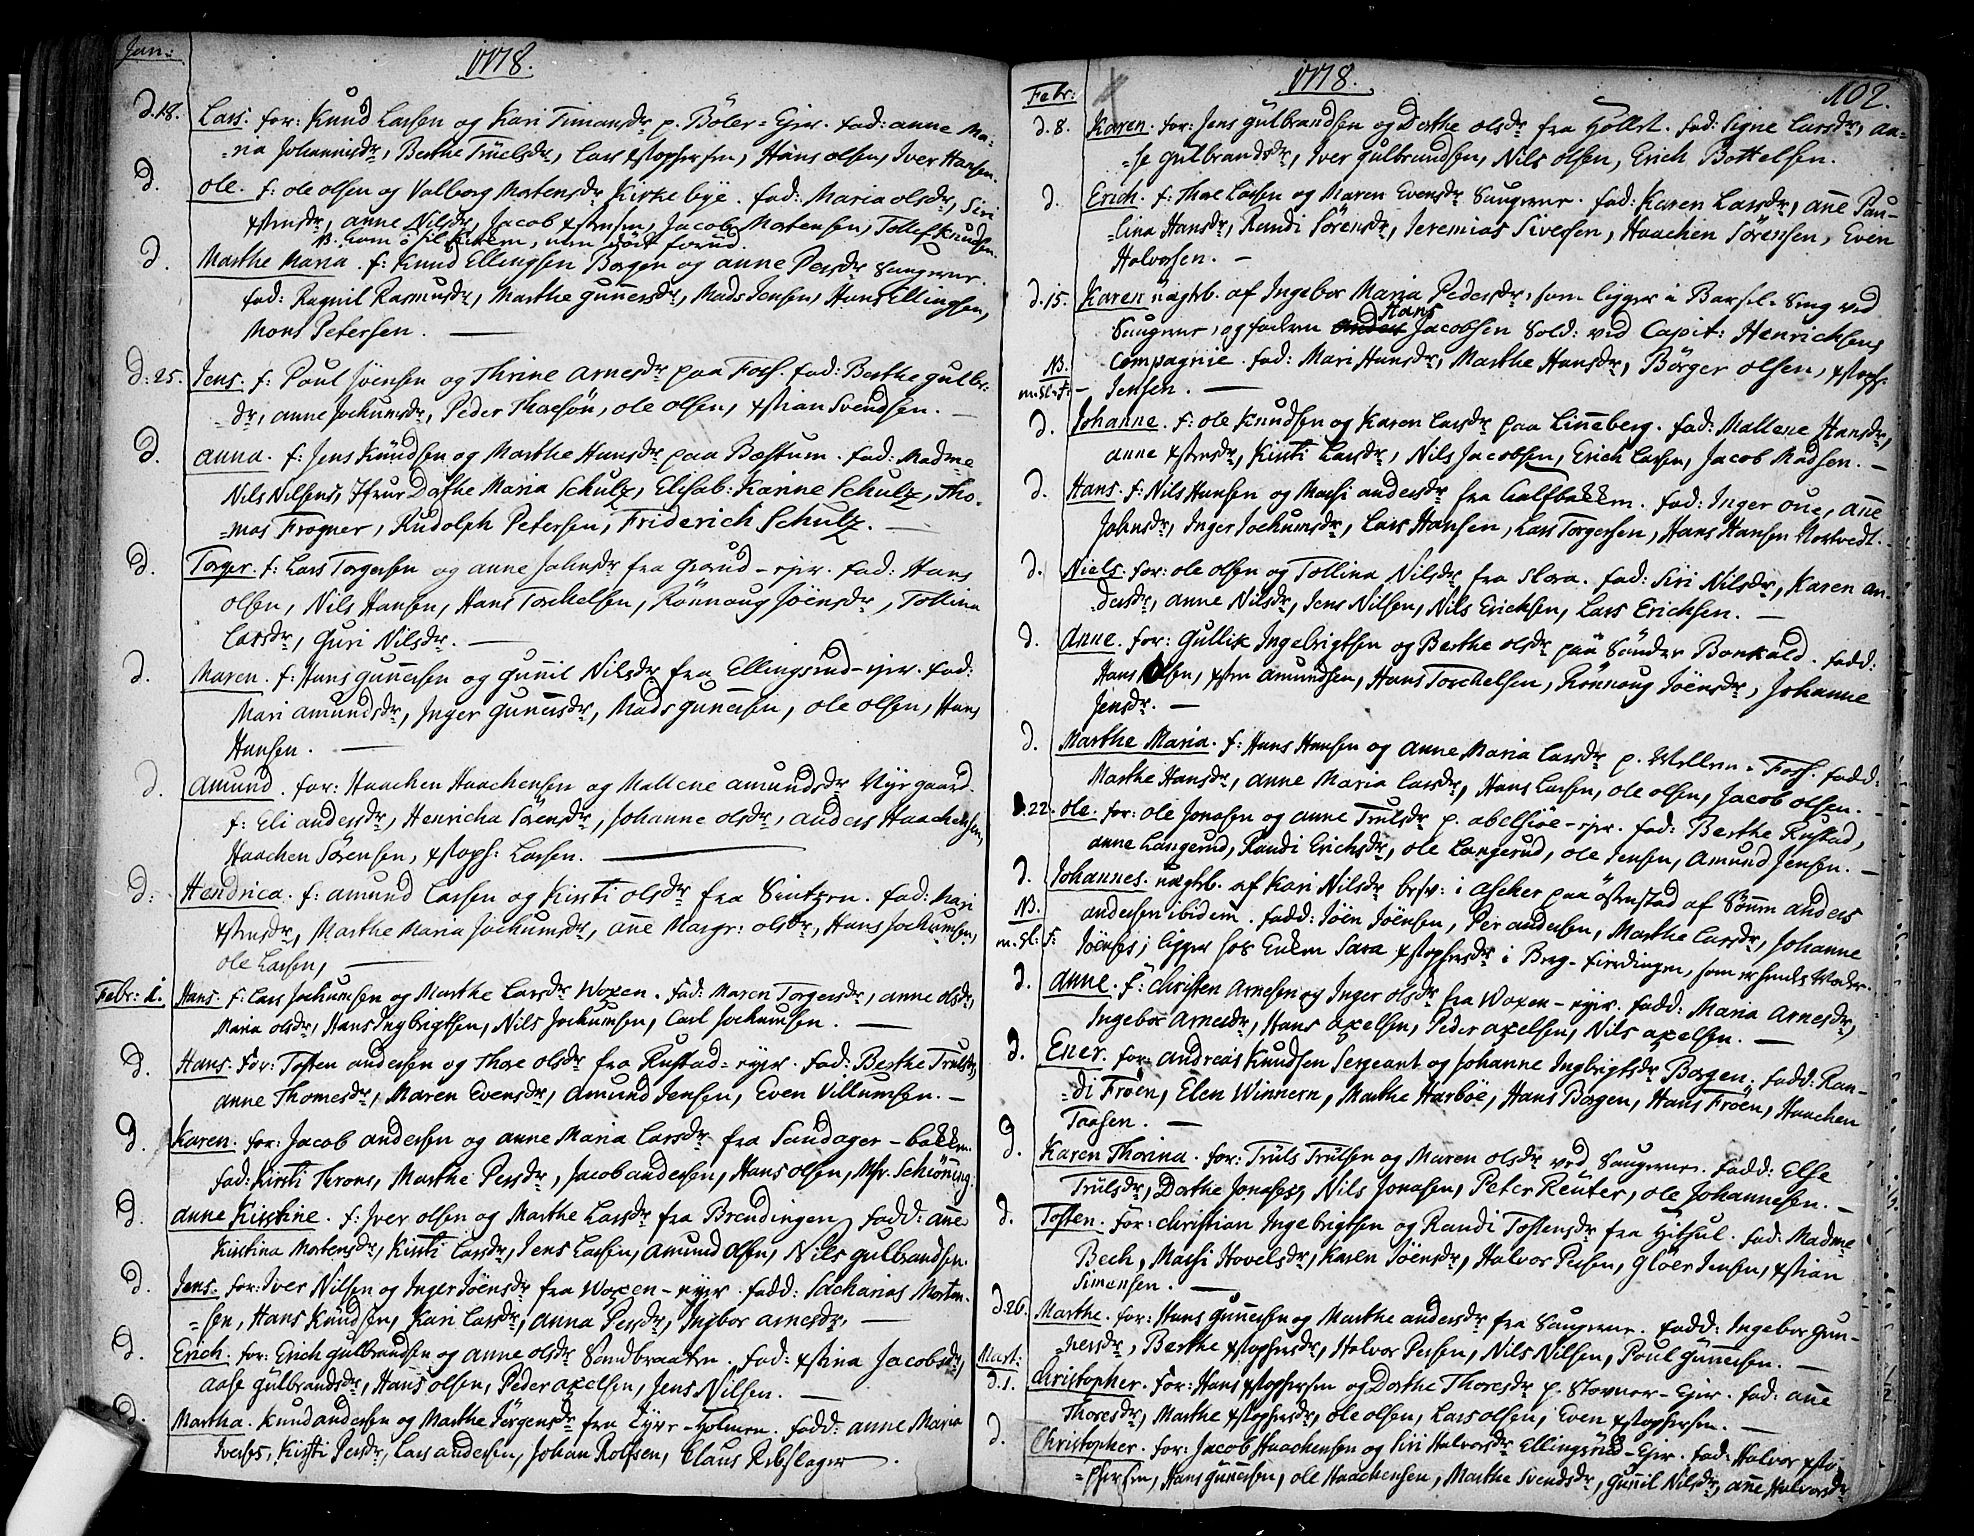 Jan: 1778.
d.18. Lars. for: Knud Larsen og Kari Timansdr p. Böler-Ejer. fad: anne Ma-
=na Johannisdr, Berthe Truelsdr, Lars xstophersen, Hans olsen, Iver Hansen.
d. ole. f: ole olsen og Valborg Mortensdr Kirkebye. fad: Maria olsdr, Siri
xstensdr, anne Nilsdr, Jacob xstensen, Jacob Mortensen, Tollef Knudsen.
d. Marthe Maria. f: Knud Ellingsen Borgen og anne Persdr Saugerne.
fad: Ragnil Rasmusdr, Marthe Gunnersdr, Mads Jensen, Hans Ellingsen,
Mons Petersen.
d:25. Jens. f: Poul Jöensen og Thrine Arnesdr paa Foss. fad: Berthe Gulbr-
dr, anne Jochumsdr, Peder Thoresön, ole olsen, xstian Svendsen.
d. anna. f: Jens Knudsen og Marthe Hansdr paa Bæstum. fad: Madme
Nils Nilsens, Jfrue Dorthe Maria Schulz, Elisab: Karine Schulz, Tho-
=mas Frogner, Rudolph Petersen, Friderich Schulz.
d. Torger. f: Lars Torgersen og anne Johnsdr fra Grorud-ejer. fad: Hans
olsen, Nils Hansen, Hans Torchelsen, Rönnoug Jöensdr, Tollina
Larsdr, Guri Nilsdr.
d. Maren. f: Hans Gunnersen og Gunnil Nilsdr fra Ellingsrud-ejer. fad:
Mari amundsdr, Inger Gunnersdr, Mads Gunnersen, ole olsen, Hans
Hansen.
d. Amund. for: Haachen Haachensen og Mallene amundsdr Nyegaard.
f: Eli andersdr, Henricha Sörensdr, Johanne olsdr, anders Haachensen,
Haachen Sörensen, xstoph: Larsen.
d: Hendrica. f: amund Larsen og Kirsti olsdr fra Sintzen. fad: Mari
xstensdr, Marthe Maria Jochumsdr, anne Margr: olsdr, Hans Jochumsen,
ole Larsen,
Febr: 1. Hans. f: Lars Jochumsen og Marthe Larsdr Woxen. fad: Maren Torgersdr, anne olsdr,
Maria olsdr, Hans Ingbrigtsen, Nils Jochumsen, Carl Jochumsen.
d. Hans. for: Tosten andersen og Thore olsdr fra Rustad-ejer. fad: Berthe Trulsdr,
anne Thomesdr, Maren Evensdr, Amund Jensen, Even Villumsen.
d. Karen. for: Jacob andersen og anne Maria Larsdr fra Sandager-bakken.
fad: Kirsti Throns, Marthe Persdr, Jacob andersen, Hans olsen, Mfr. Schiönning.
d. Anne Kirstine. f: Iver olsen og Marthe Larsdr fra Brendingen. fadd: anne
Kirstina Mortensdr, Kirsti Larsdr, Jens Larsen, Amund olsen, Nils Gulbrandsen.
d. Jens. for: Iver Nilsen og Inger Jöensdr fra Woxen-ejer. fadd: Sacharias Morten-
=sen, Hans Knudsen, Kari Larsdr, anna Persdr, Ingbor arnesdr.
d. Erich. for: Erich Gulbrandsen og anne olsdr Sandbraaten. fad: xstina Jacobsdr,
aase Gulbrandsdr, Hans olsen, Peder axelsen, Jens Nilsen.
d. Martha. Knud andersen og Marthe Jörgensdr fra Ejers-Holmen. fadd: anne Maria
Iverses, Kirsti Persdr, Lars andersen, Johan Rolfsen, Claus Rebslager.
Febr: 1778. 102.
d.8. Karen. for: Jens Gulbrandsen og Dorthe olsdr fra Hollst. fad: Signe Larsdr, aa-
=se Gulbrandsdr, Iver Gulbrandsen, Nils olsen, Erich Bottelsen.
d. Erich. f: Thore Larsen og Maren Evensdr Saugerne. fad: Karen Larsdr, anne Pau-
=lina Hansdr, Randi Sörensdr, Jeremias Siversen, Haachen Sörensen, Even
Halvorsen.
d.15. Karen uægtb. af Ingebor Maria Pedersdr, som ligger i Barsel-Seng ved
Saugerne, og faderen Hans Jacobsen Sold: ved Capit: Henrichsens
NB. Compagnie. fad: Mari Hansdr, Marthe Hansdr, Börger olsen, xstoph.
m. Sl. f: Jensen.
d. Johanne. f: ole Knudsen og Karen Larsdr paa Linneberg. fad: Mallene Hansdr,
anne xstensdr, Kirsti Larsdr, Nils Jacobsen, Erich Larsen, Jacob Madsen.
d. Hans. f: Nils Hansen og Marsi andersdr fra Kalfbakken. fad: Inger oue, anne
Johnsdr, Inger Jochumsdr, Lars Hansen, Lars Torgersen, Hans Hansen Nortvedt.
d. Niels. for: ole olsen og Tollina Nilsdr fra Flora. fad: Siri Nilsdr, Karen An-
dersdr, anne Nilsdr, Jens Nilsen, Nils Ericksen, Lars Erichsen.
d. Anne. for: Gullik Ingebrigtsen og Berthe olsdr paa Sönder Bonkald. fadd:
Hans Olsen, xsten Amundsen, Hans Torchelsen, Rönnoug Jöensdr, Johanne
Jensdr.
d. Marthe Maria. f: Hans Hansen og anne Maria Larsdr p. Mellem-Foss. fadd:
Marthe Hansdr, anne Maria Larsdr, Hans Larsen, ole olsen, Jacob olsen.
d.22. ole. for: ole Jonasen og anne Trulsdr p. abelsiöe-ejer. fad: Berthe Rustad,
anne Langerud, Randi Erichsdr, ole Langerud, ole Jensen, Amund Jensen.
d. Johannes. uægtb. af Kari Nilsdr besv: i asker paa östenstad af Sönnen anders
NB. andersen ibidem. fadd: Jöen Jöensen, Per andersen, Marthe Larsdr, Johanne
m. Sl: f: Jöenses; ligger hos Enken Sara xstophersdr i Brag-fierdingen, som er hends Moder.
d. Anne. f: Christen Arnesen og Inger olsdr fra Woxen-ejer. fadd: Maria Arnesdr,
Ingebor Arnesdr, Hans axelsen, Peder axelsen, Nils axelsen.
d. Ener. for: Andreas Knudsen Sergeant og Johanne Ingbrigtsdr Borgen. fadd: Ran-
=di Fröen, Elen Winnern, Marthe Harböe, Hans Borgen, Hans Fröen, Haachen
Taasen.
d. Karen Thorina. for: Truls Trulsen og Maren olsdr ved Saugerne. fadd: Else
Trulsdr, Dorthe Jonases, Nils Jonasen, Peter Reuter, ole Johannesen.
d. Tosten. for: Christian Ingebrigtsen og Randi Tostensdr fra Hitsul. fad: Madme
Bech, Marsi Hovelsdr, Karen Jöensdr, Halvor Persen, Glöer Jensen, xstian
Simensen.
d.26. Marthe. for: Hans Gunnersen og Marthe andersdr fra Saugerne. fadd: Ingebor Gun-
=nersdr, Berthe xstophersdr, Halvor Persen, Nils Nilsen, Poul Gunnersen.
Mart:
d.1. Christopher. for: Hans xstophersen og Dorthe Thoresdr p. Stovner-Ejer. fad: anne
Thoresdr, Marthe xstophersdr, ole olsen, Lars olsen, Even xstophersen.
d. Christopher. for: Jacob Haachensen og Siri Halvorsdr Ellingsrud-Ejer. fad: Halvor xsto-
=phersen, Hans Gunnersen, ole Haachensen, Marthe Svendsdr, Gunnil Nilsdr, anne Halvorsdr